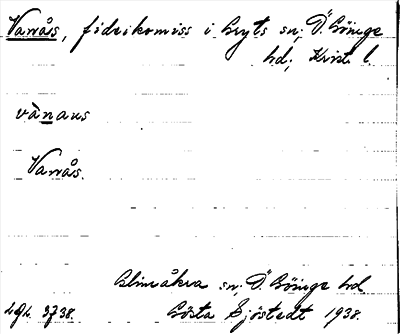 Vanås, fideikomiss i Gryts sn; Ö. Göinge
hd; Krist. l.
vànaus
Vanås.
Glimåkra sn, Ö. Göinge hd
Gösta Sjöstedt 1938.